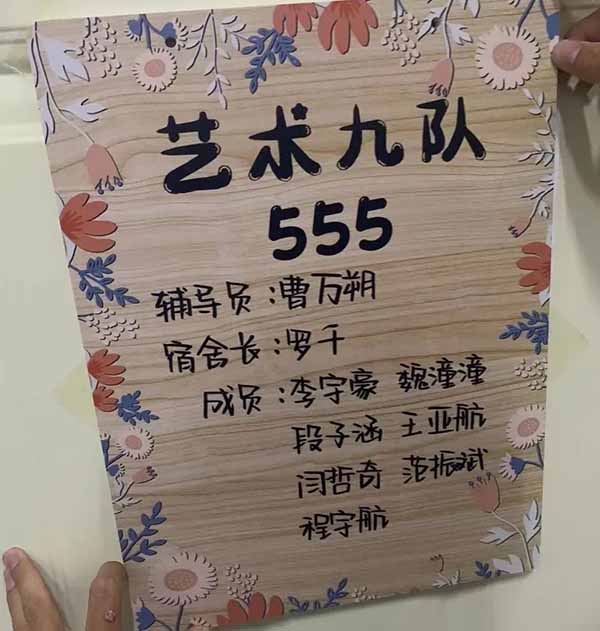 艺术九队
555
辅导员：曹万朔
宿舍长：罗千
成员：李宇豪 魏潼潼
段子涵 王亚航
闫哲奇 范振斌
程宇航